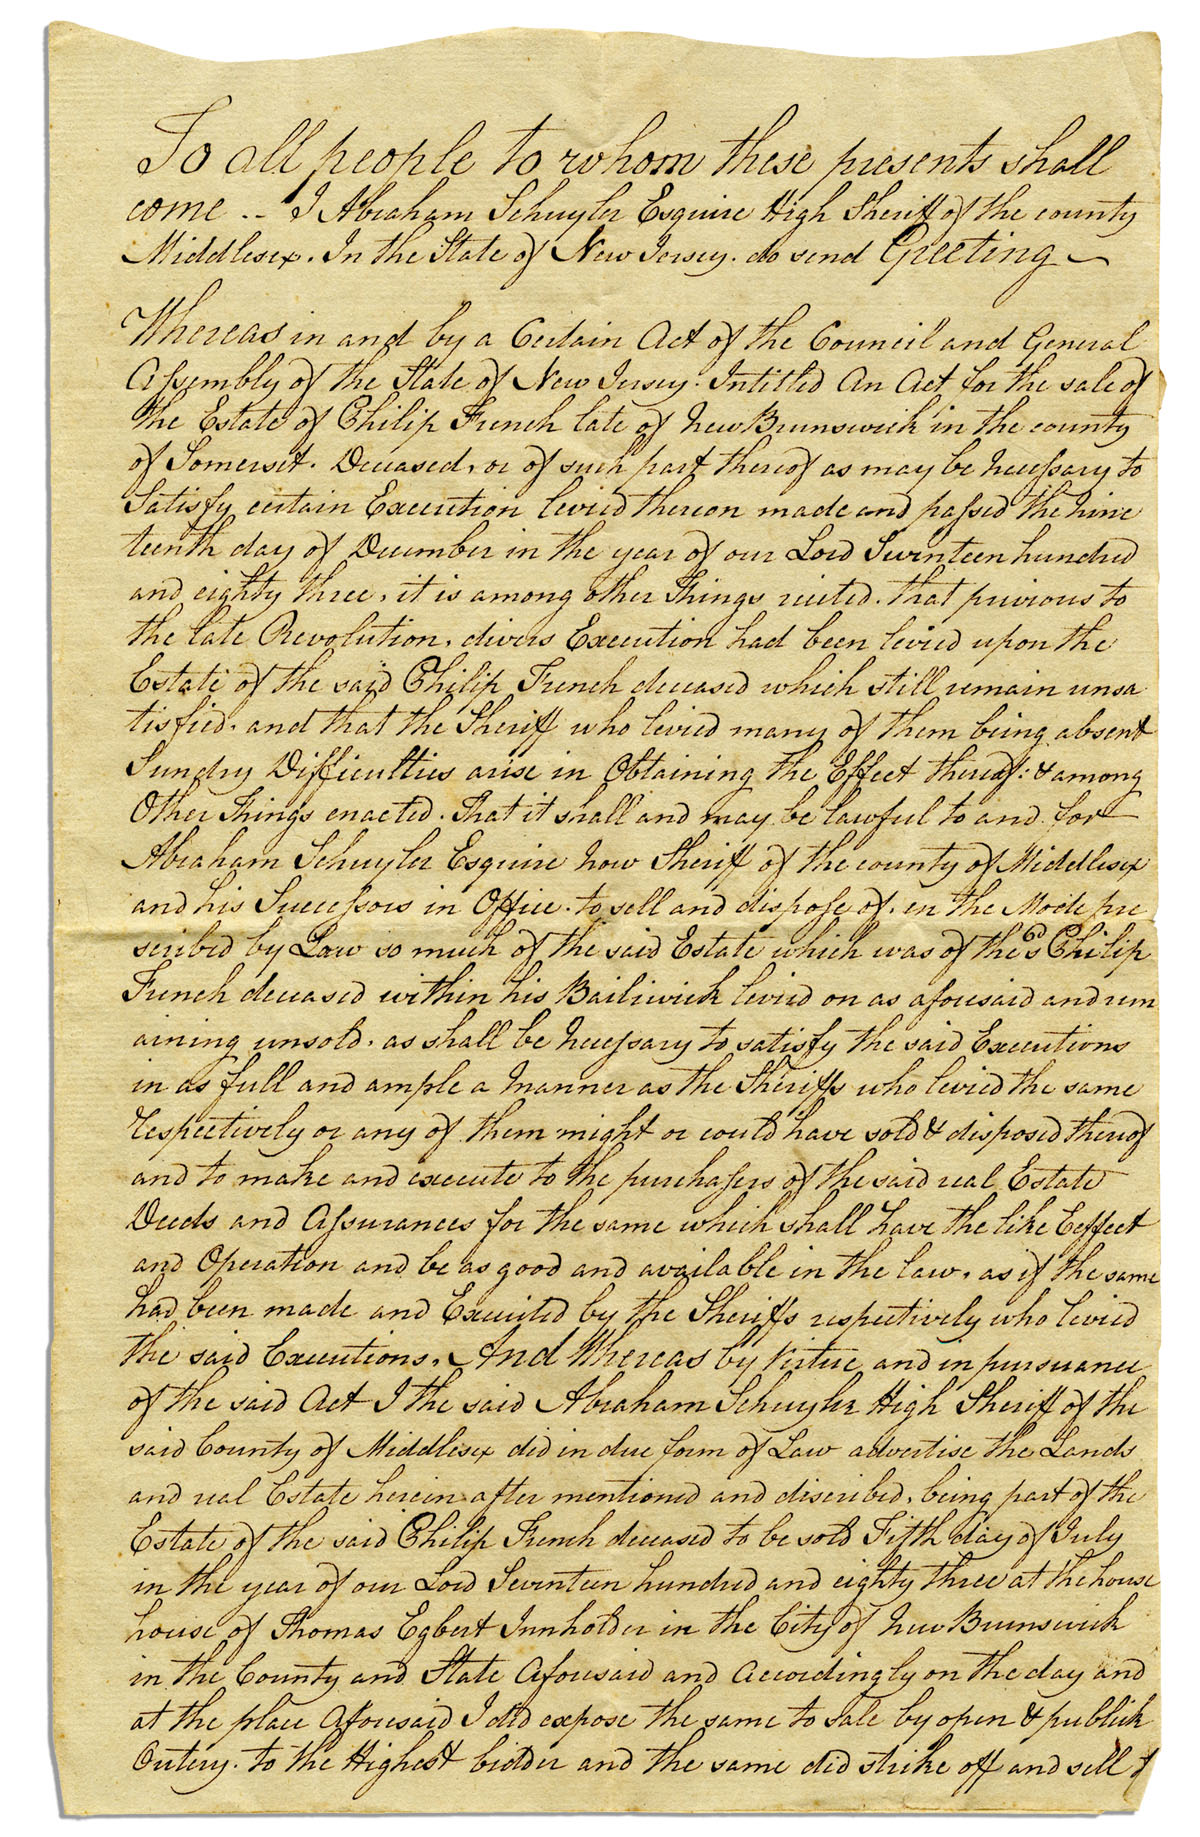 To all people to whom these presents shall
come .. I Abraham Schuyler Esquire High Sheriff of the county
Middlesex. In the State of New Jersey. do send Greeting ~
Whereas in and by a Certain Act of the Council and General
Assembly of the State of New Jersey. Intitled An Act for the sale of
the Estate of Philip French late of New Brunswick in the county
of Somerset. Deceased, or of such part thereof as may be Necessary to
Satisfy certain Execution levied thereon made and passed the nine
teenth day of December in the year of our Lord Seventeen hundred
and eighty three, it is among other Things recited. that previous to
the late Revolution, divers Execution had been levied upon the
Estate of the said Philip French deceased which still remain unsa
tisfied. and that the Sheriff who levied many of them being absent
Sundry Difficulties arise in Obtaining the Effect thereof: & among
Other Things enacted. That it shall and may be lawful to and for
Abraham Schuyler Esquire now Sheriff of the county of Middlesex
and his Successors in Office. to sell and dispose of. in the Mode pre
scribed by Law so much of the said Estate which was of the sd Philip
French deceased within his Bailiwick levied on as aforesaid and rem
aining unsold. as shall be Necessary to satisfy the said Executions
in as full and ample a Manner as the Sheriffs who levied the same
respectively or any of them might or could have sold & disposed thereof
and to make and execute to the purchasers of the said real Estate
Deeds and Assurances for the same which shall have the like Eeffect
and Operation and be as good and available in the law, as if the same
had been made and Executed by the Sheriffs respectively who levied
the said Executions. And Whereas by Virtue and in pursuance
of the said Act I the said Abraham Schuyler High Sheriff of the
said County of Middlesex did in due form of Law advertise the Lands
and real Estate herein after mentioned and discribed, being part of the
Estate of the said Philip French deceased to be sold Fifth day of July
in the year of our Lord Seventeen hundred and eighty three at the house
house of Thomas Egbert Innholder in the City of New Brunswick
in the County and State Aforesaid and Accordingly on the day and
at the place Aforesaid I did expose the same to Sale by open & publick
Outcry. to the Highest bidder and the same did strike off and sell t